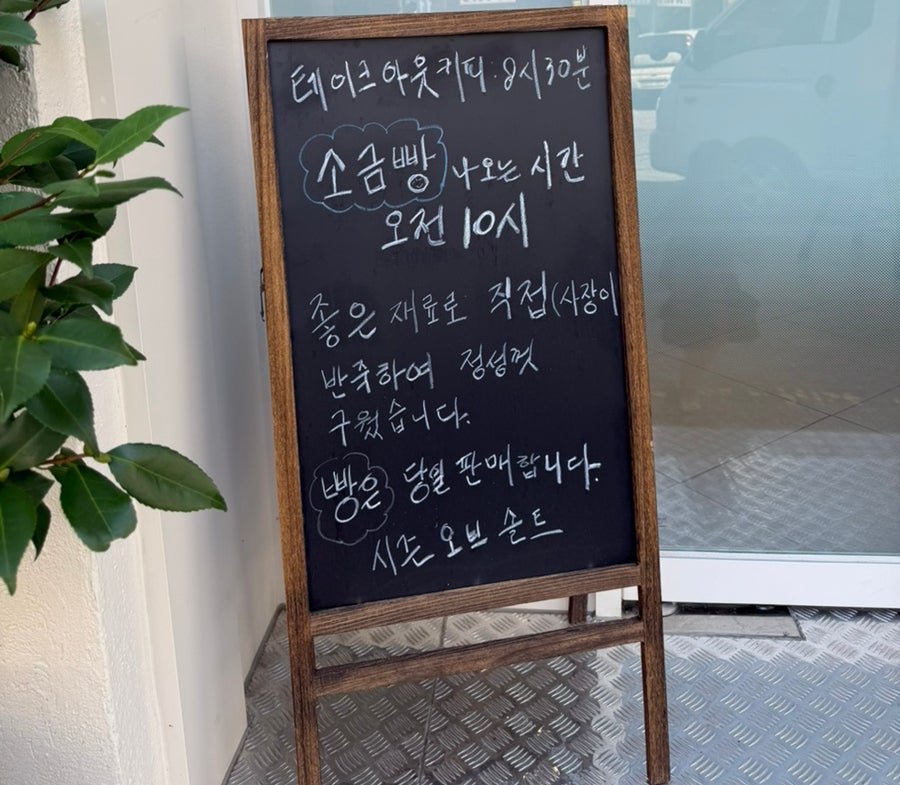 테이크 아웃 커피. 8시 30분
소금빵 나오는 시간
오전 10시
좋은 재료로 직접(사장이
반죽하여 정성껏
구웠습니다.
빵은 당일 판매합니다.
시즌 오브 솔트